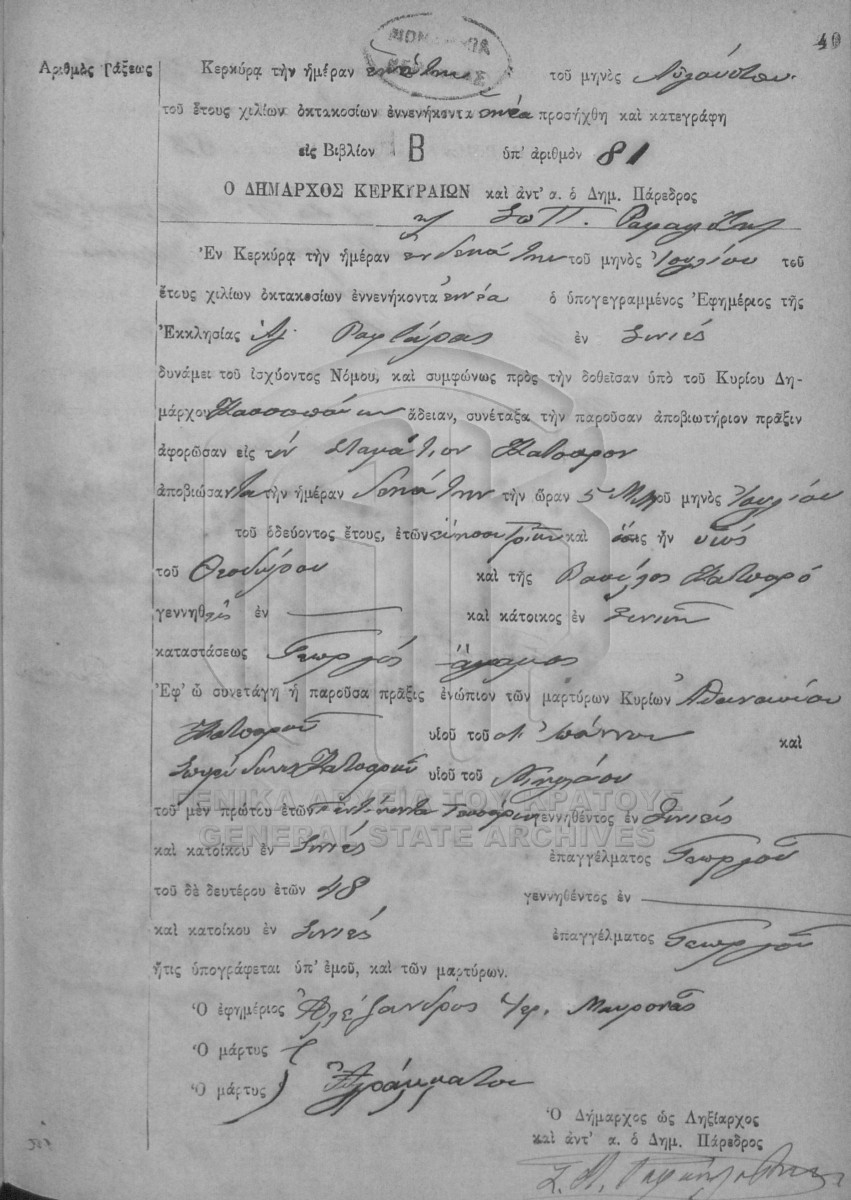 40
Ἀριθμὸς τάξεως
Κερκύρᾳ τὴν ἡμέραν ἐνάτην τοῦ μηνὸς Αὐγούστου
τοῦ ἔτους χιλίων ὀκτακοσίων ἐννενήκοντα ἐννέα προσήχθη καὶ κατεγράφη
εἰς Βιβλίον Β ὑπ' ἀριθμὸν 81
Ο ΔΗΜΑΡΧΟΣ ΚΕΡΚΥΡΑΙΩΝ καὶ ἀντ' α. ὁ Δημ. Πάρεδρος
Ἐν Κερκύρᾳ τὴν ἡμέραν ἑνδεκάτην τοῦ μηνὸς Ἰουλίου τοῦ
ἔτους χιλίων ὀκτακοσίων ἐννενήκοντα ἐννέα ὁ ὑπογεγραμμένος Ἐφημέριος τῆς
Ἐκκλησίας Ἁγ. ἐν Σινιές
δυνάμει τοῦ ἰσχύοντος Νόμου, καὶ συμφώνως πρὸς τὴν δοθεῖσαν ὑπὸ τοῦ Κυρίου Δη-
μάρχου Κασσωπαίων ἄδειαν, συνέταξα τὴν παροῦσαν ἀποβιωτήριον πρᾶξιν
ἀφορῶσαν εἰς τὸν Σταμάτιον Κατσαρὸν
ἀποβιώσαντα τὴν ἡμέραν δεκάτην τὴν ὥραν 5 Μ.Μ. τοῦ μηνὸς Ἰουλίου
τοῦ ὁδεύοντος ἔτους, ἐτῶν εἴκοσι τριῶν καὶ ὅστις ἦν υἱὸς
τοῦ Θεοδώρου καὶ τῆς Κατσαρό
γεννηθεὶς ἐν — καὶ κάτοικος ἐν Σινιές
καταστάσεως Γεωργὸς ἄγαμος
Ἐφ' ᾧ συνετάγη ἡ παροῦσα πρᾶξις ἐνώπιον τῶν μαρτύρων Κυρίων Ἀθανασίου
Κατσαροῦ υἱοῦ τοῦ Ἰωάννου καὶ
Σπυρίδωνος Κατσαροῦ υἱοῦ τοῦ Νικολάου
ΓΕΝΙΚΑ ΑΡΧΕΙΑ ΤΟΥ ΚΡΑΤΟΥΣ
τοῦ μὲν πρώτου ἐτῶν πεντήκοντα τεσσάρων γεννηθέντος ἐν Σινιές
GENERAL STATE ARCHIVES
καὶ κατοίκου ἐν Σινιές ἐπαγγέλματος Γεωργοῦ
τοῦ δὲ δευτέρου ἐτῶν 48 γεννηθέντος ἐν —
καὶ κατοίκου ἐν Σινιές ἐπαγγέλματος Γεωργοῦ
ἥτις ὑπογράφεται ὑπ' ἐμοῦ, καὶ τῶν μαρτύρων.
Ὁ ἐφημέριος Ἀλέξανδρος Ἱερ. Μαυρονᾶς
Ὁ μάρτυς
Ὁ μάρτυς Ἀγράμματοι
Ὁ Δήμαρχος ὡς Ληξίαρχος
καὶ ἀντ' α. ὁ Δημ. Πάρεδρος